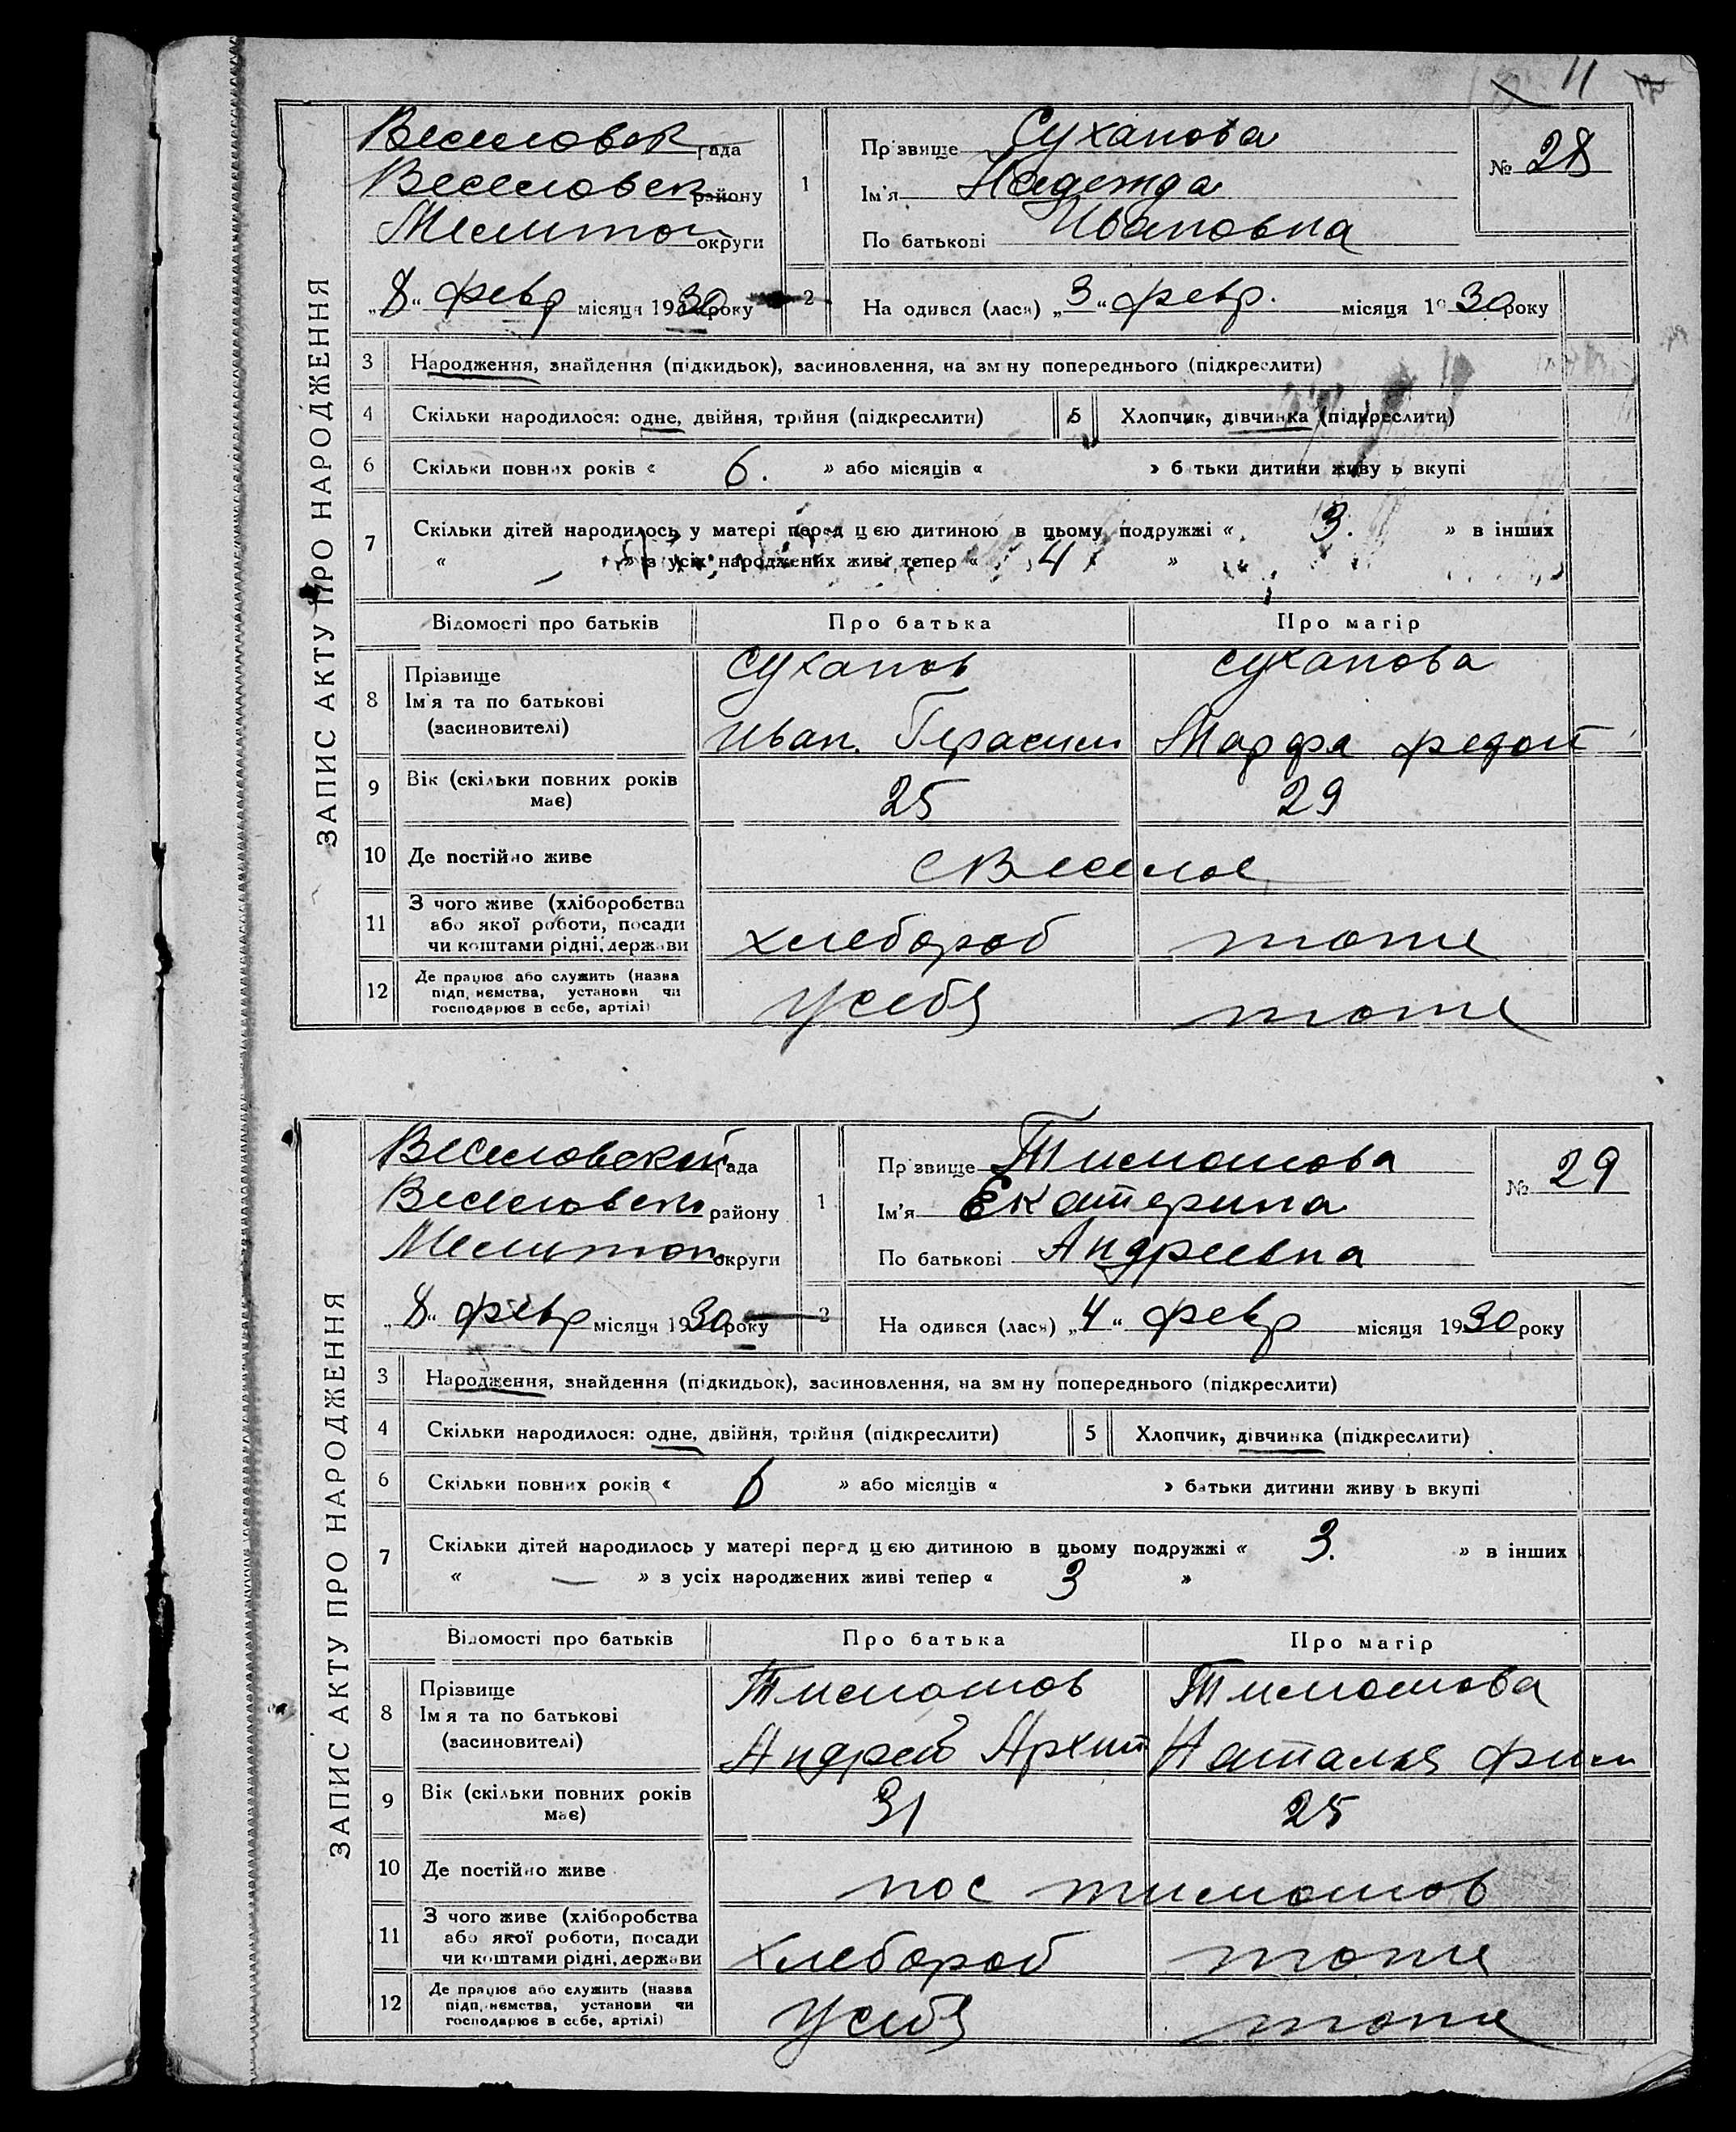 11
ЗАПИС АКТУ ПРО НАРОДЖЕННЯ
Веселовск рада
Веселовск району
Мелитоп округи
„8“ февр місяця 1930 року
1
Прізвище Суханова
Ім'я Надежда
По батькові Ивановна
№ 28
2
Народився (лася) „3“ февр. місяця 1930 року
3 Народження, знайдення (підкидьок), засиновлення, на зміну попереднього (підкреслити)
4 Скільки народилося: одне, двійня, трійня (підкреслити) 5 Хлопчик, дівчинка (підкреслити)
6 Скільки повних років « 6. » або місяців « » батьки дитини живуть вкупі
7 Скільки дітей народилось у матері перед цією дитиною в цьому подружжі « 3. » в інших
« — » з усіх народжених живі тепер « 4 »
Відомості про батьків Про батька Про матір
8 Прізвище Суханов Суханова
Ім'я та по батькові
(засиновителі) Иван. Герасим Марфа Федот
9 Вік (скільки повних років має) 25 29
10 Де постійно живе с Веселое
11 З чого живе (хліборобства
або якої роботи, посади
чи коштами рідні, держави хлебороб тоже
12 Де працює або служить (назва
підприємства, установи чи
господарює в себе, артілі) у себя тоже
ЗАПИС АКТУ ПРО НАРОДЖЕННЯ
Веселовской рада
Веселовск району
Мелитоп округи
„8“ февр місяця 1930 року
1
Прізвище Тимошова
Ім'я Екатерина
По батькові Андреевна
№ 29
2
Народився (лася) „4“ февр місяця 1930 року
3 Народження, знайдення (підкидьок), засиновлення, на зміну попереднього (підкреслити)
4 Скільки народилося: одне, двійня, трійня (підкреслити) 5 Хлопчик, дівчинка (підкреслити)
6 Скільки повних років « 6 » або місяців « » батьки дитини живуть вкупі
7 Скільки дітей народилось у матері перед цією дитиною в цьому подружжі « 3. » в інших
« — » з усіх народжених живі тепер « 3 »
Відомості про батьків Про батька Про матір
8 Прізвище Тимошов Тимошова
Ім'я та по батькові
(засиновителі) Андрей Архип Наталья Фим
9 Вік (скільки повних років має) 31 25
10 Де постійно живе пос Тимошов
11 З чого живе (хліборобства
або якої роботи, посади
чи коштами рідні, держави хлебороб тоже
12 Де працює або служить (назва
підприємства, установи чи
господарює в себе, артілі) у себя тоже